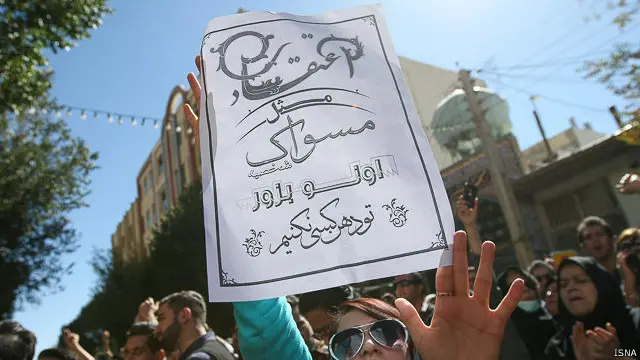 اعتقاد
مثل
مسواک
شخصیه
اونو بزور
تو دهن کسی نکنیم
ISNA